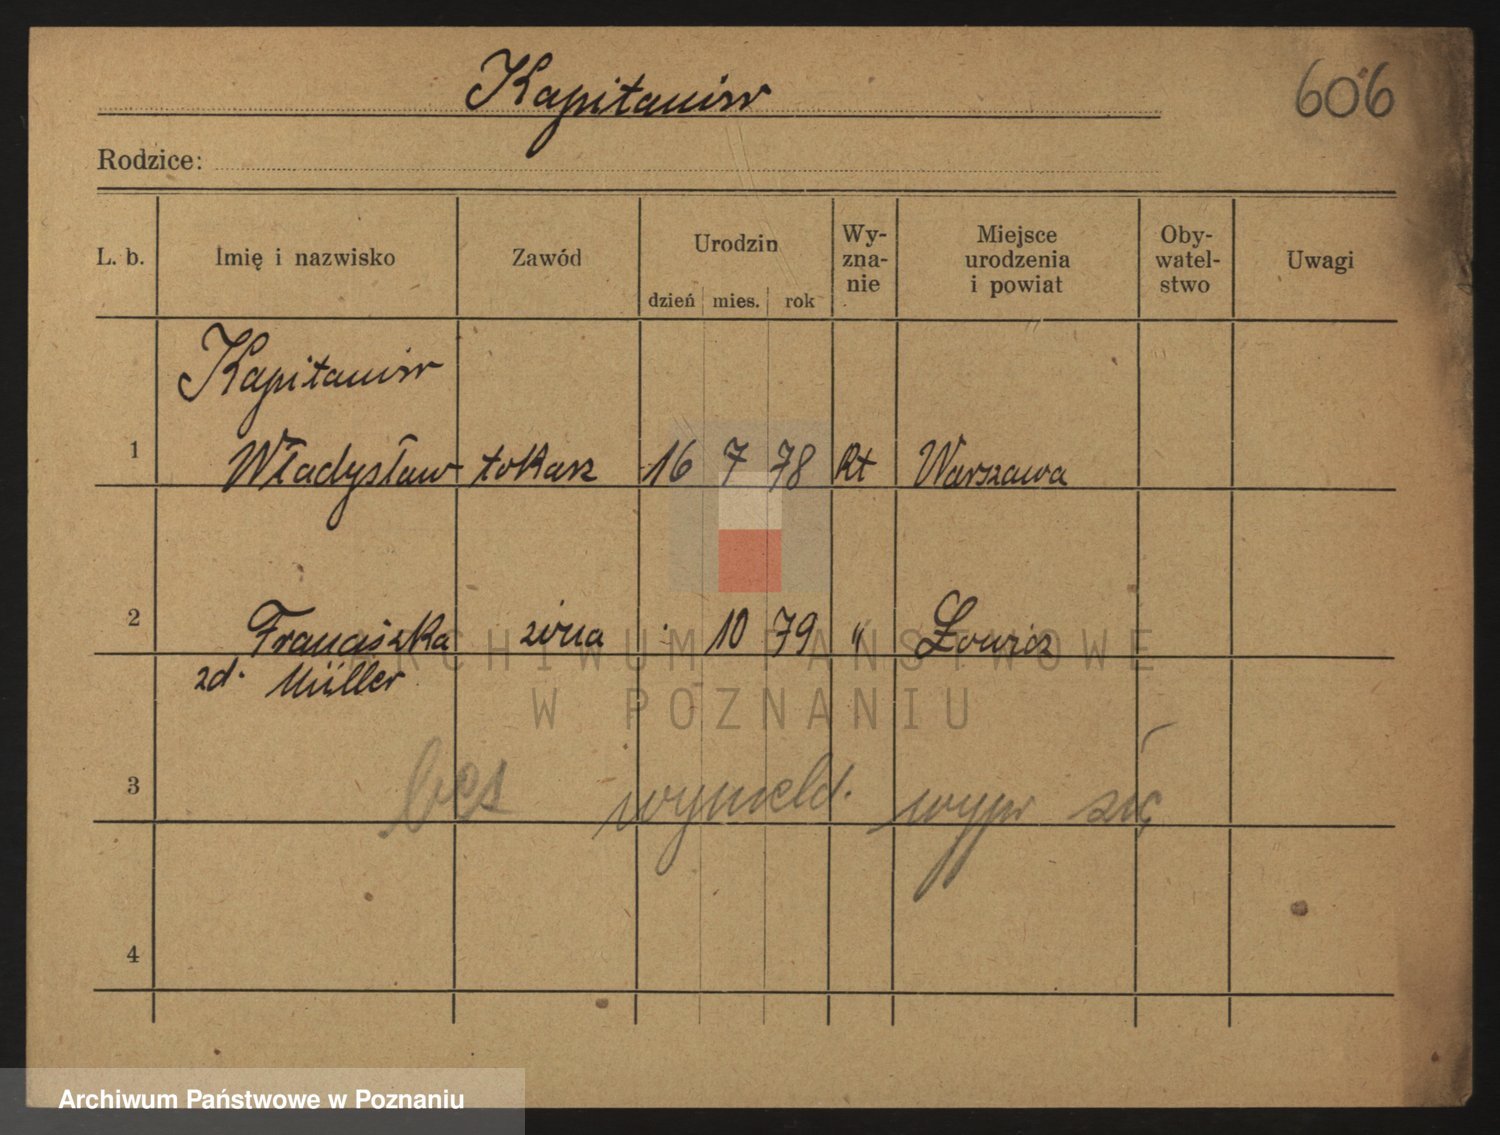 Kapitaniw
606
Rodzice:
L. b. Imię i nazwisko Zawód Urodzin dzień mies. rok Wy-zna-nie Miejsce urodzenia i powiat Oby-watel-stwo Uwagi
Kapitaniw
1 Władysław tokarz 16 7 78 Rt Warszawa
2 Franciszka żona 10 79 " Łowicz
zd. Müller
ARCHIWUM PAŃSTWOWE
W POZNANIU
3 bez wymeld. wypr się
4
Archiwum Państwowe w Poznaniu